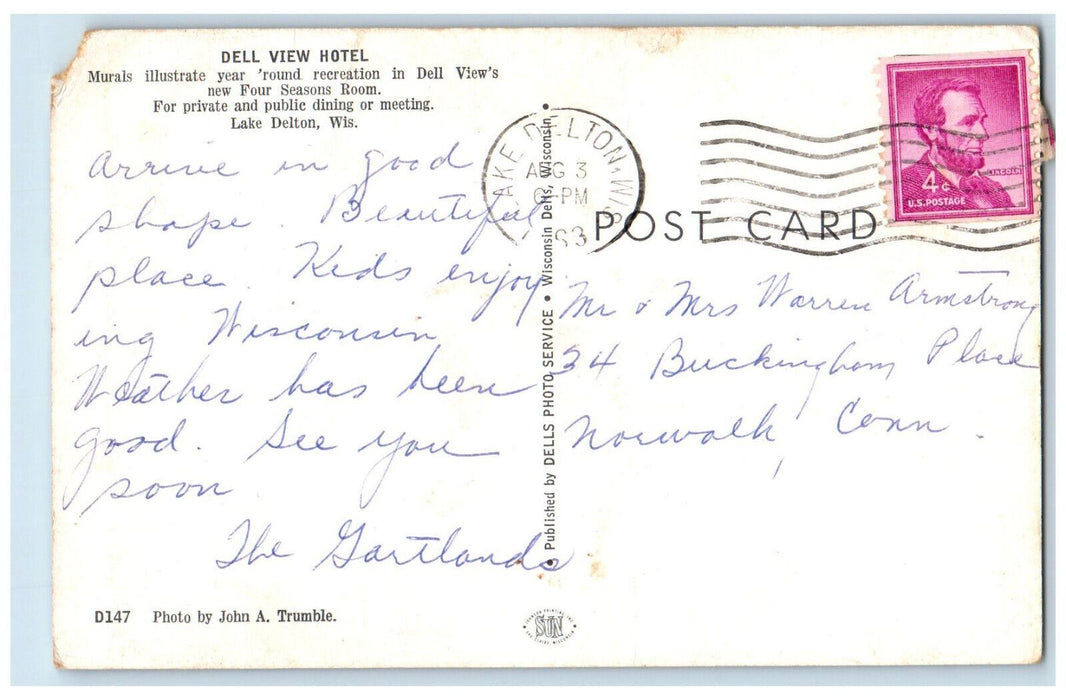 DELL VIEW HOTEL
Murals illustrate year 'round recreation in Dell View's
new Four Seasons Room.
For private and public dining or meeting.
Lake Delton, Wis.
Arrive in good
shape. Beautiful
place. Kids enjoy
ing Wisconsin
Weather has been
good. See you
soon
The Gartlands
D147 Photo by John A. Trumble.
Published by DELLS PHOTO SERVICE • Wisconsin Dells, Wisconsin
LAKE DELTON, WIS
AUG 3
PM
POST CARD
4¢
LINCOLN
U.S. POSTAGE
Mr & Mrs Warren Armstrong
34 Buckingham Place
Norwalk, Conn.
SUN